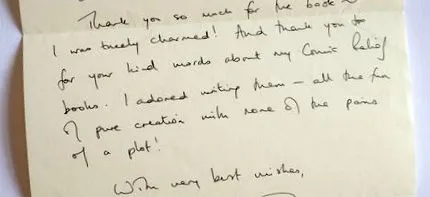 Thank you so much for the book –
I was truly charmed! And thank you too
for your kind words about my Comic Relief
books. I adored writing them – all the fun
of pure creation with none of the pains
of a plot!
With very best wishes,